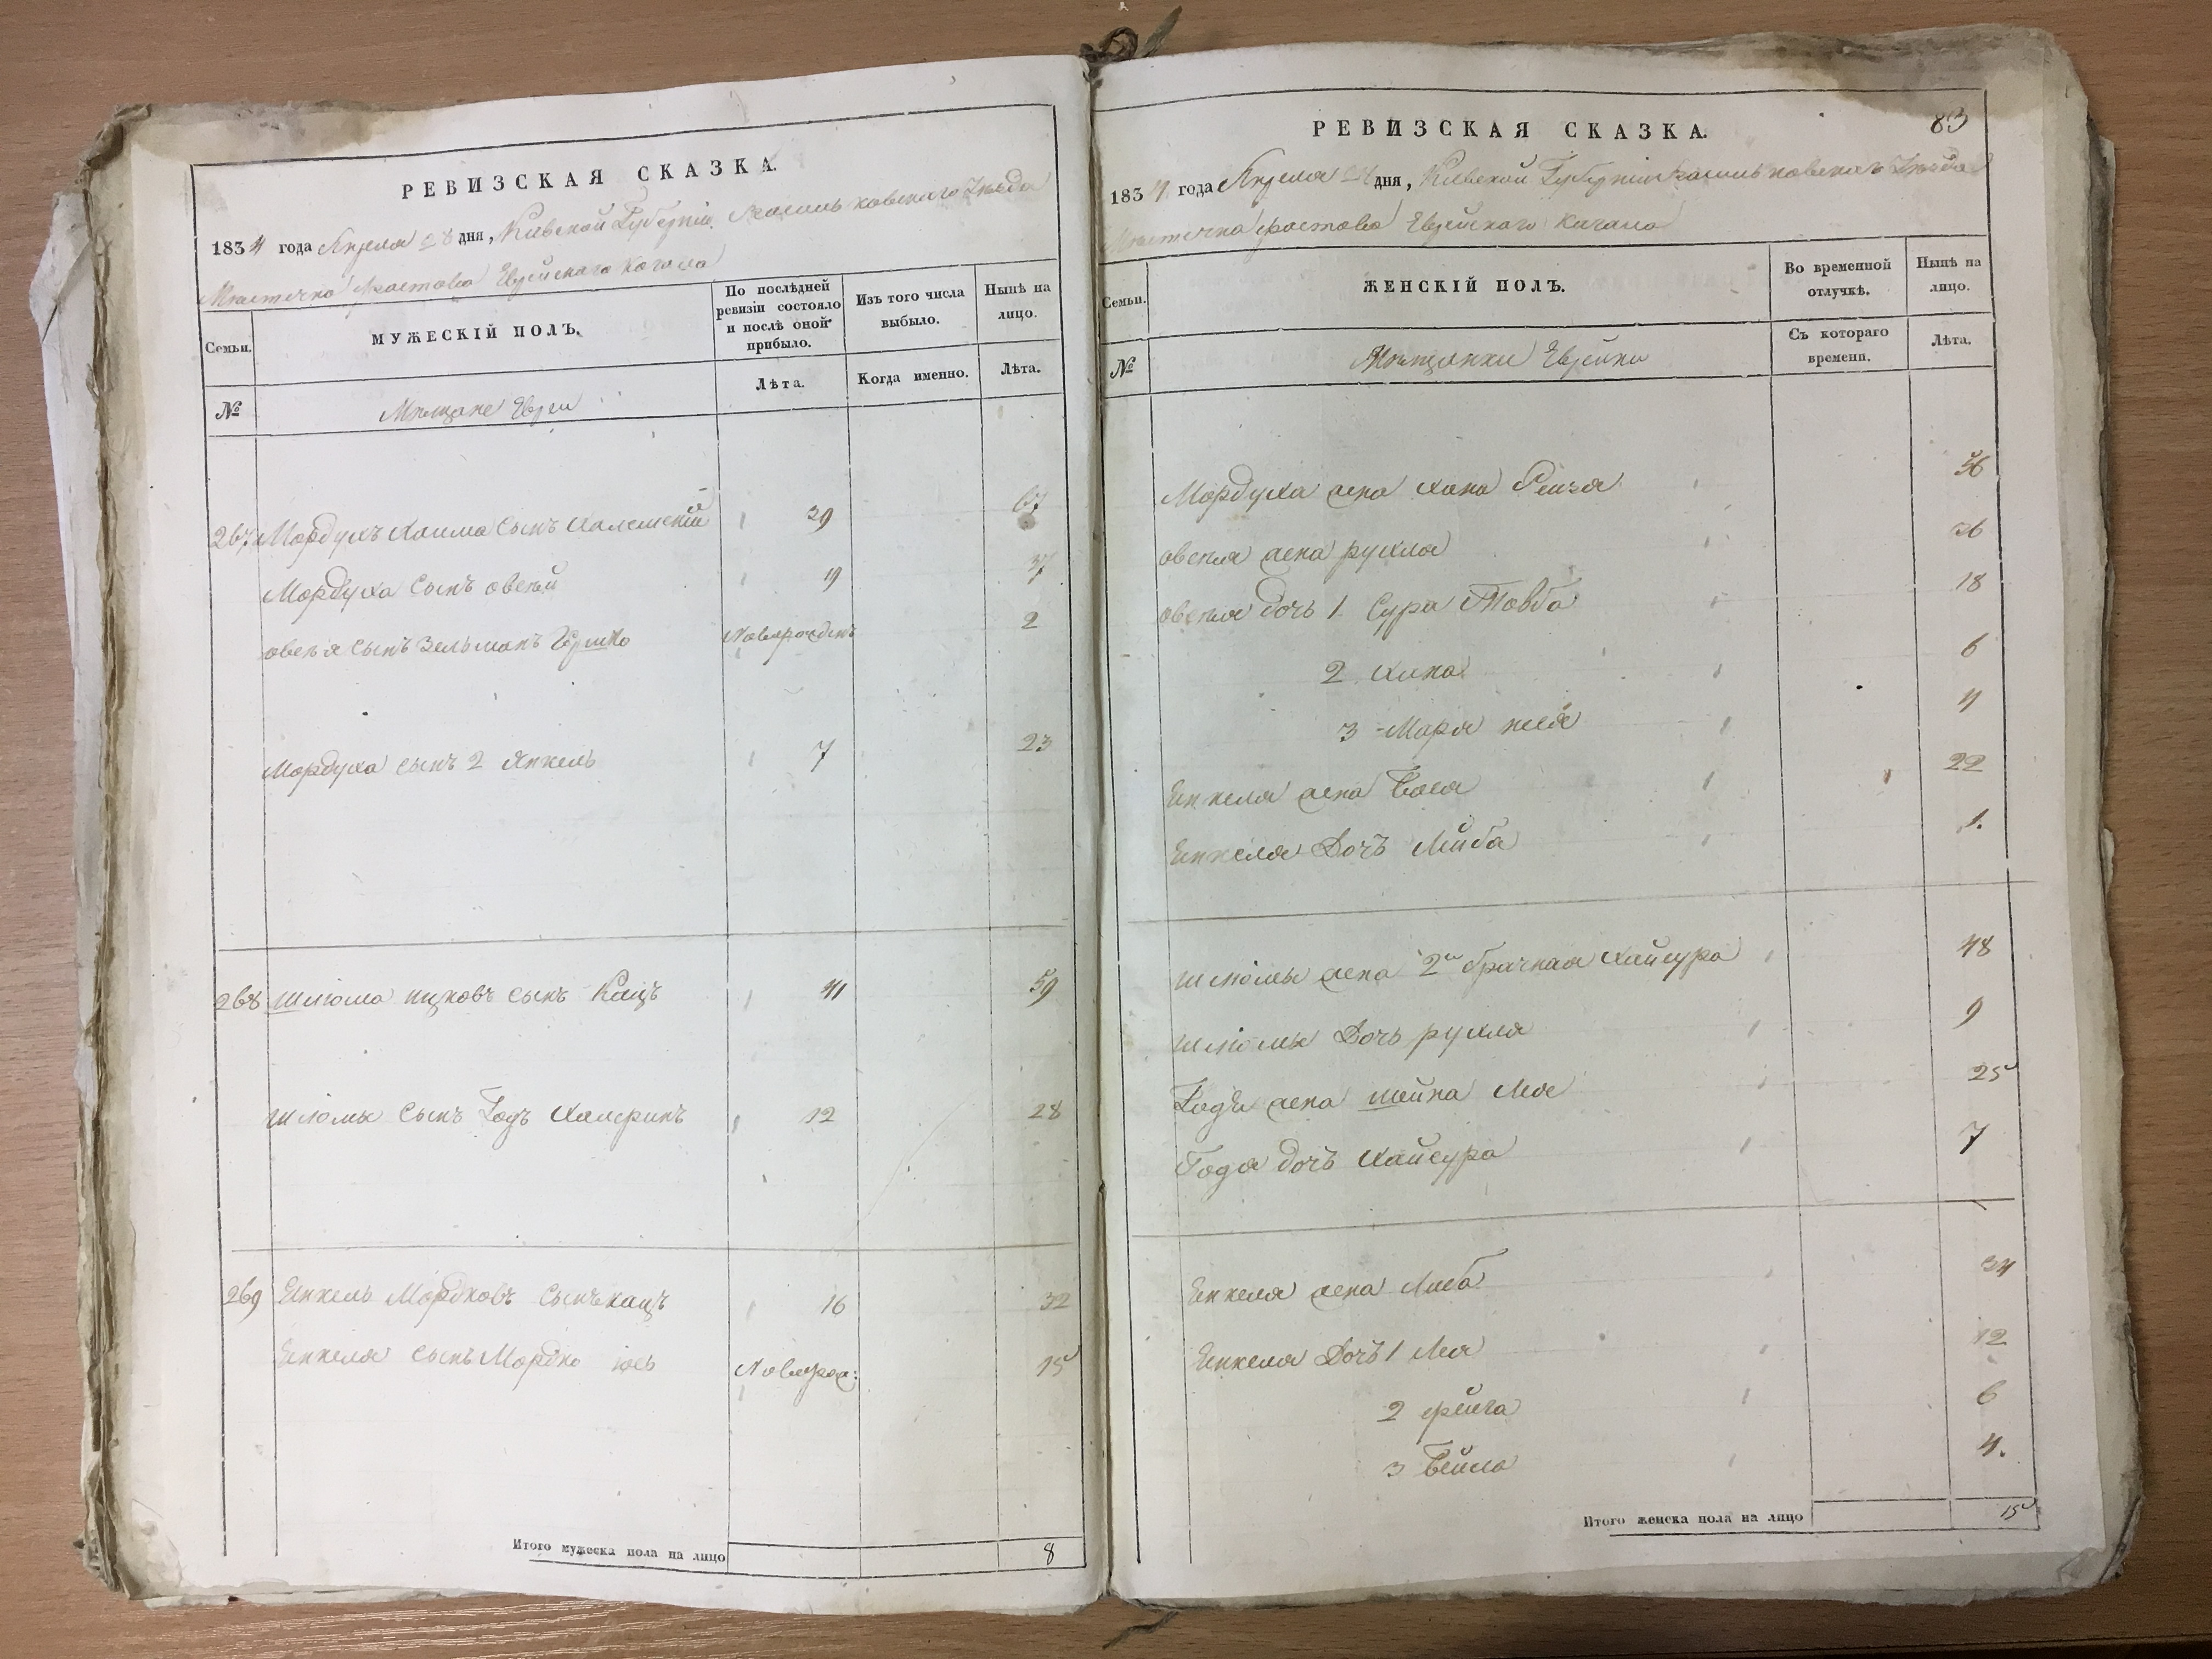 РЕВИЗСКАЯ СКАЗКА.
1834 года Апреля 28 дня, Киевской Губерніи Васильковскаго Уезда
Местечка Фастова Еврейскаго Кагала
Семьи.
МУЖЕСКІЙ ПОЛЪ.
По послѣдней ревизіи состояло и послѣ оной прибыло.
Изъ того числа выбыло.
Нынѣ на лицо.
№
Мещане Евреи
Лѣта.
Когда именно.
Лѣта.
267 Мордухъ Хаима Сынъ 39
Мордуха Сынъ овсей 19 37
овсея Сынъ Зельманъ Гершко Новорожденъ 2
Мордуха сынъ 2 Янкель 7 23
268 Шлiома ицковъ сынъ Кацъ 41 59
Шлiомы Сынъ Годъ 12 28
269 Енкель Мордковъ Сынъ кацъ 16 32
Енкеля сынъ Мордко Новорож: 15
Итого мужеска пола на лицо 8
83
РЕВИЗСКАЯ СКАЗКА.
1834 года Апреля 28 дня, Киевской Губерніи Васильковскаго Уезда
Местечка Фастова Еврейскаго Кагала
Семьи.
ЖЕНСКІЙ ПОЛЪ.
Во временной отлучкѣ.
Нынѣ на лицо.
№
Мещанки Еврейки
Съ котораго времени.
Лѣта.
Мордуха жена хана Рейза 56
овсея жена рухля 36
овсея дочь 1 Сура Товба 18
2 хана 6
3 Маря 4
Енкеля жена Бася 22
Енкеля Дочь Лийба 1.
Шлiомы жена 2й брачная Хайсура 48
Шлiомы Дочь рухля 9
Годъ жена шейна Лея 25
Года дочь Хайсура 7
Енкеля жена Либа 34
Енкеля Дочь 1 Лея 12
2 фейга 6
3 Бейла 4.
Итого женска пола на лицо 15